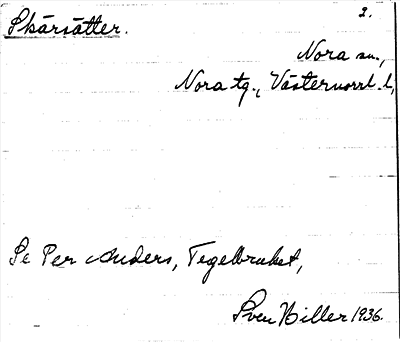 Skärsätter. 2.
Nora sn.,
Nora tg., Västernorrl. l,
Se Per Anders, Tegelbruket,
Sven Hiller 1936.